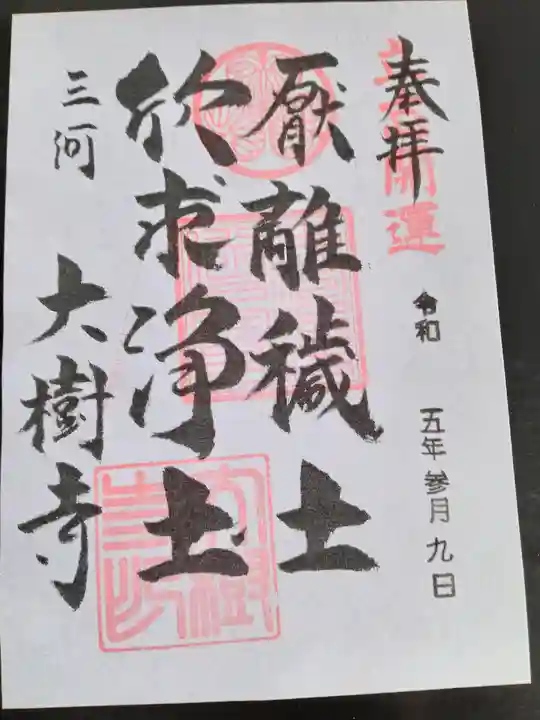 奉拝
開運
令和 五年 参月 九日
厭離穢土
欣求浄土
三河 大樹寺